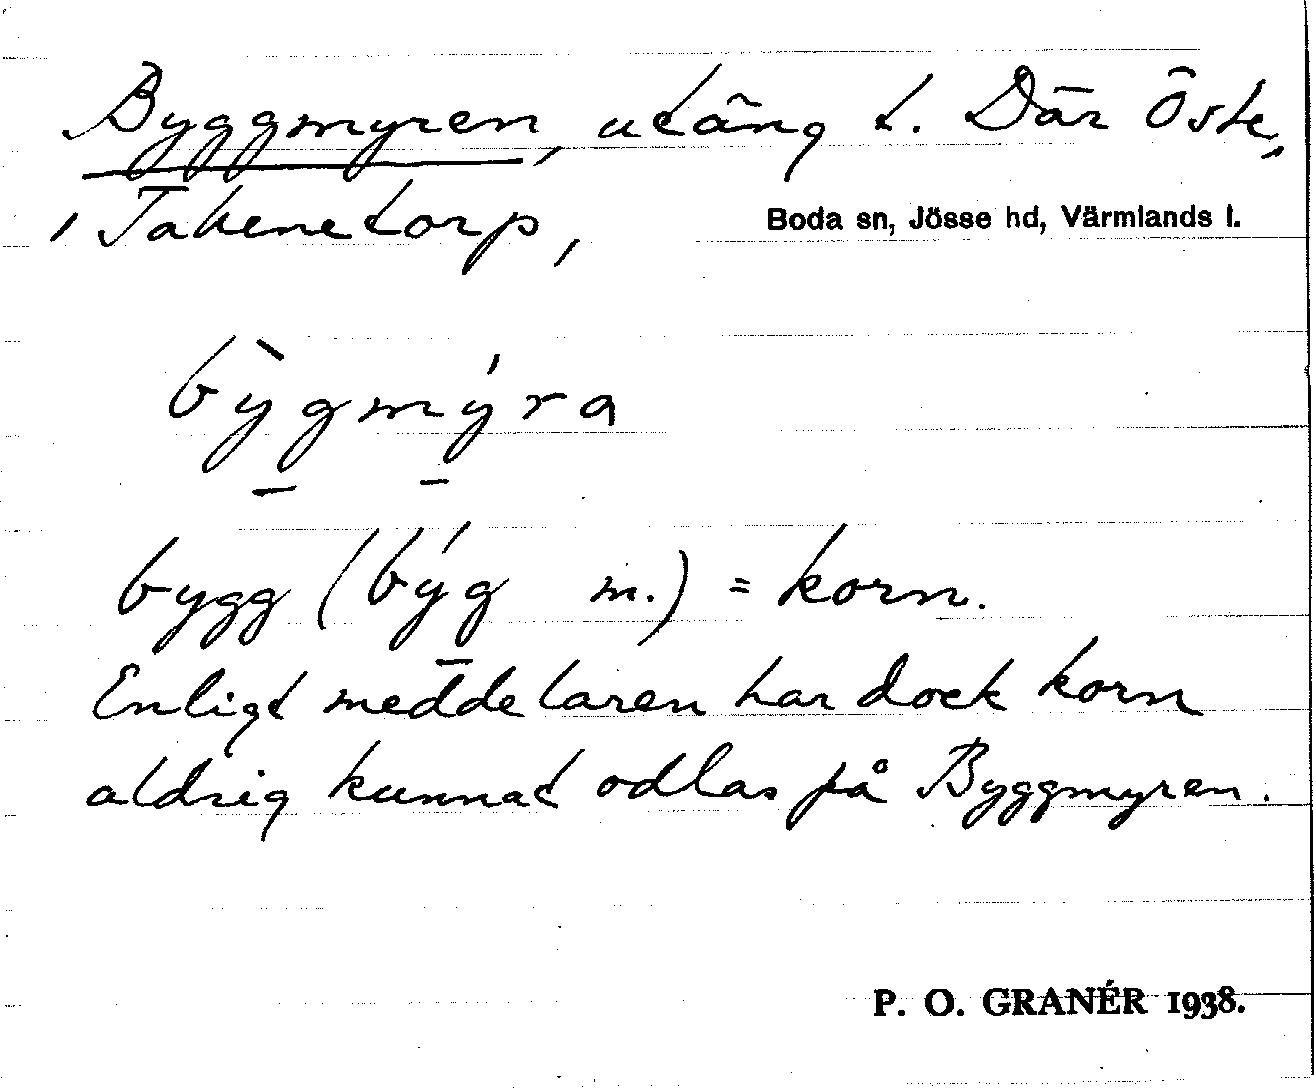 Byggmyren, utäng t. Där Öste,
i Takenetorp,
Boda sn, Jösse hd, Värmlands l.
bỳgmýra
bygg (býg m.) = korn.
Enligt meddelaren har dock korn
aldrig kunnat odlas på Byggmyren.
P. O. GRANÉR 1938.